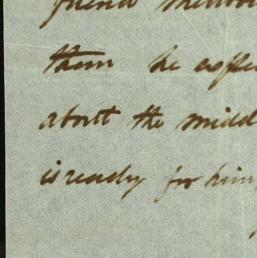 friend
them he expe
about the midd
is ready for him